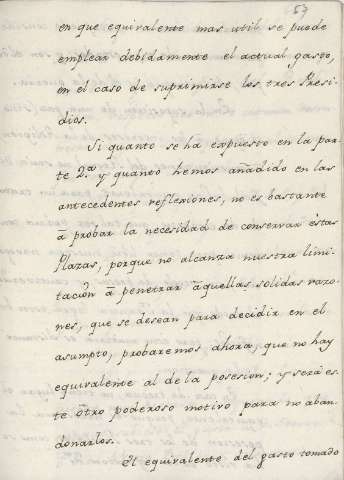 57
en que equivalente mas util se puede
emplear debidamente el actual gasto,
en el caso de suprimirse los tres Presi-
dios.
Si quanto se ha expuesto en la par-
te 2.ª y quanto hemos añadido en las
antecedentes reflexiones, no es bastante
â probar la necesidad de conservar êstas
Plazas, porque no alcanza nuestra limi-
tacion â penetrar âquellas solidas razo-
nes, que se desean para decidir en el
asumpto, probaremos ahora, que no hay
equivalente al de la posesion; y será es-
te ôtro poderoso motivo para no aban-
donarlos.
El equivalente del gasto tomado